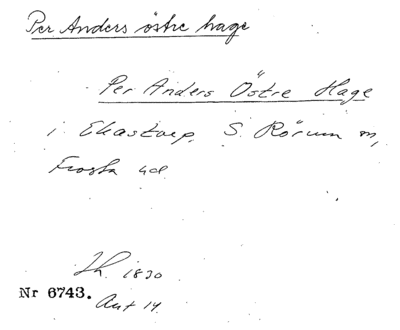 Per Anders östre hage
Per Anders Östre Hage
i Ekastorp, S. Rörum sn,
Frosta hd
Lk. 1830
Nr 6743. Akt 14